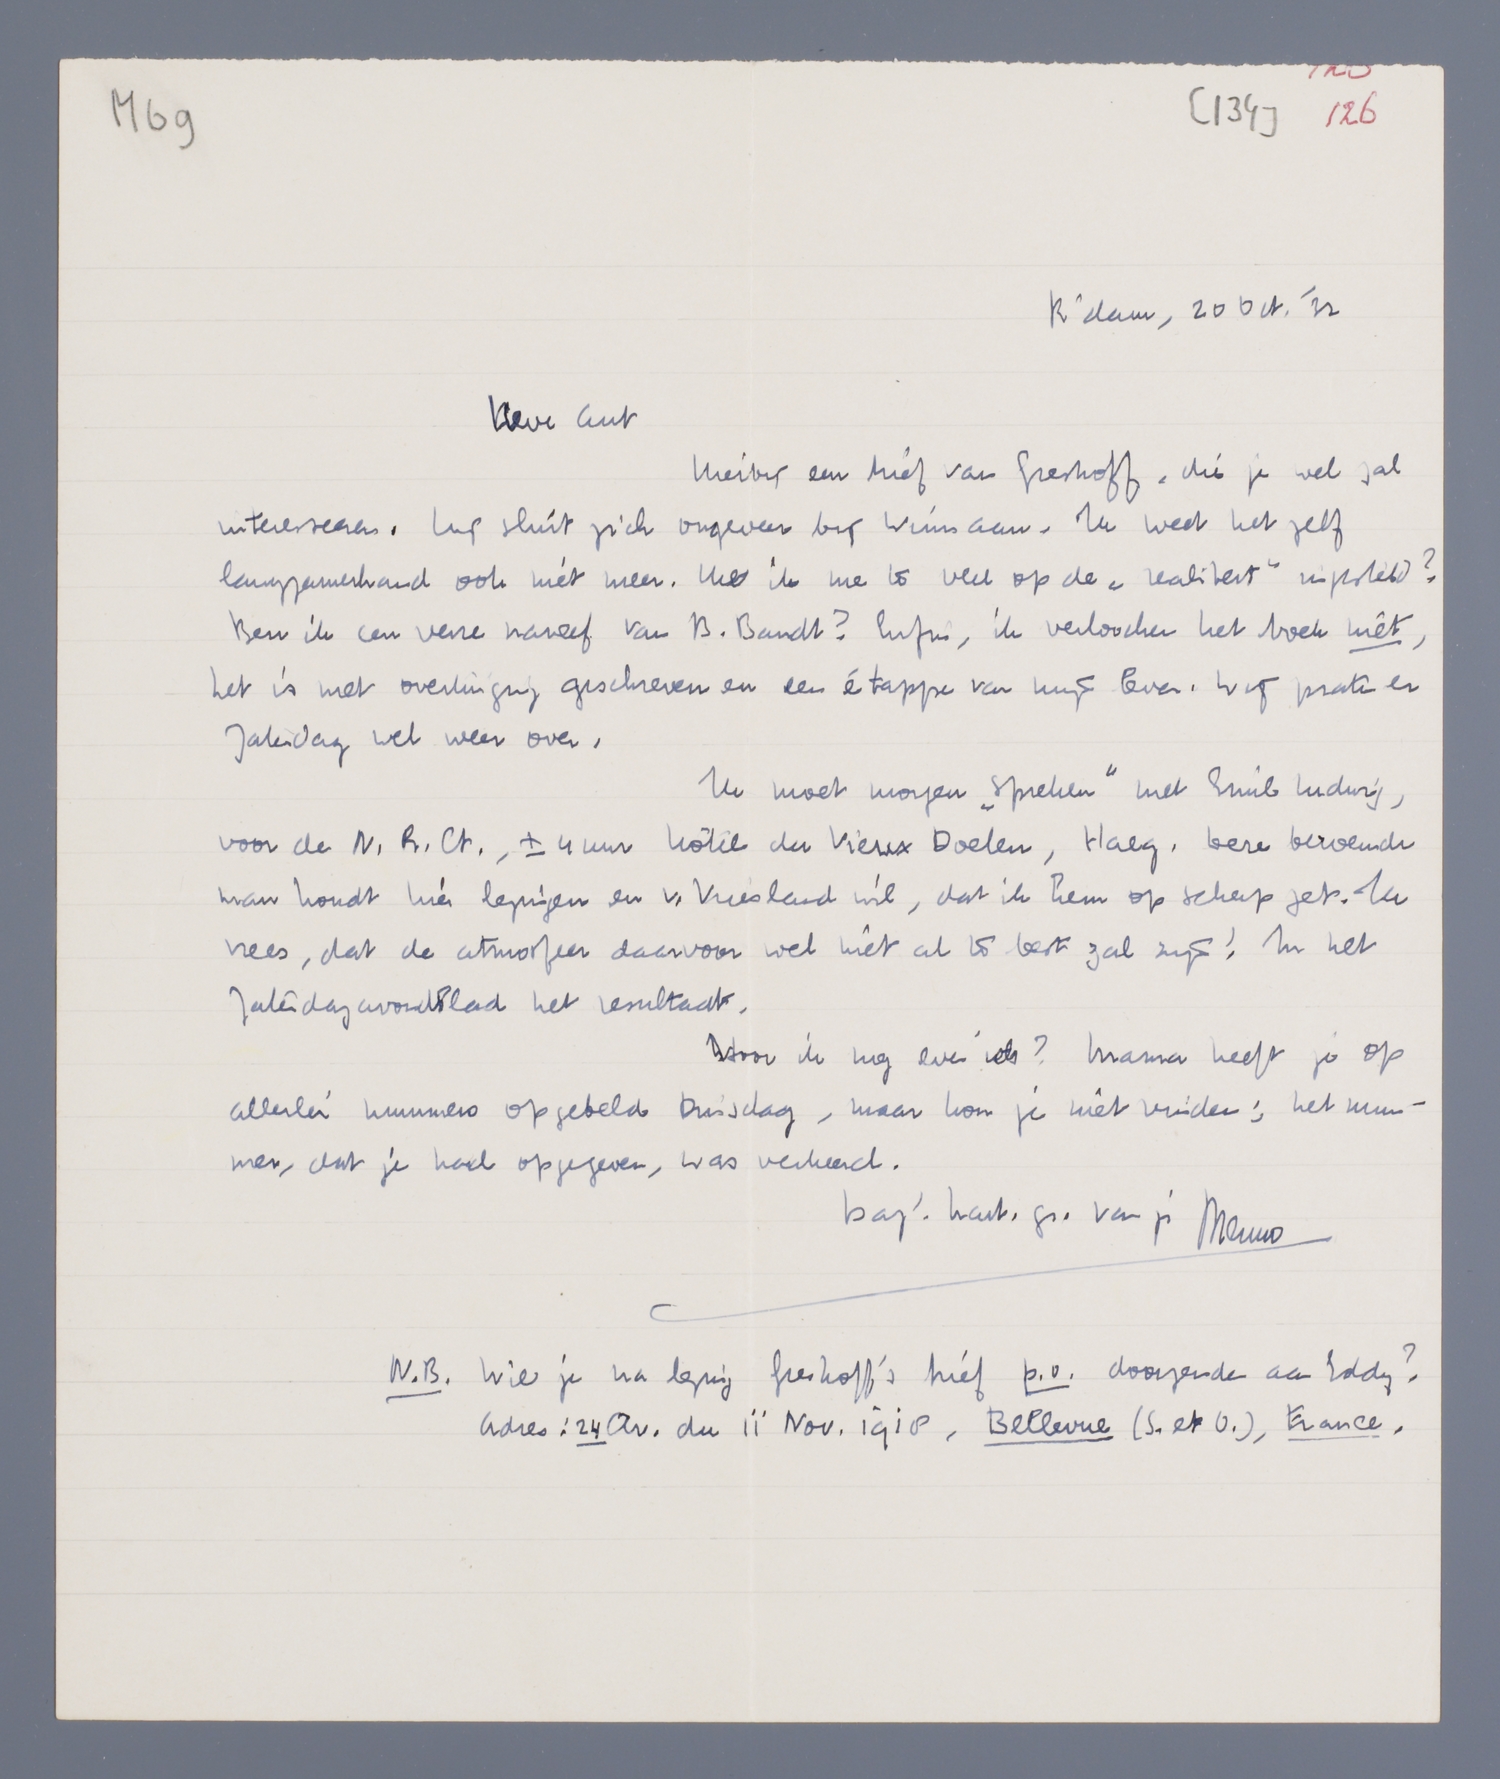 M69
[134] 126
R'dam, 20 Oct. '32
Lieve Ant
Hierbij een brief van Greshoff, die je wel zal
interesseeren. Hij sluit zich ongeveer bij Wim aan. Ik weet het zelf
langzamerhand ook niet meer. Heb ik me te veel op de „realiteit" ingesteld?
Ben ik een verre naneef van B. Bandt? Enfin, ik verloochen het boek niet,
het is met overtuiging geschreven en een étappe van mijn leven. Wij praten er
Zaterdag wel weer over.
Ik moet morgen „spreken" met Emil Ludwig,
voor de N.R.Ct., ± 4 uur hôtel du Vieux Doelen, Haag. Deze beroemde
man houdt hier lezingen en v. Vriesland wil, dat ik hem op scherp zet. Ik
vrees, dat de atmosfeer daarvoor wel niet al te best zal zijn! In het
Zaterdagavondblad het resultaat.
Hoor ik nog even iets? Mama heeft je op
allerlei nummers opgebeld Dinsdag, maar kon je niet vinden; het num-
mer, dat je had opgegeven, was verkeerd.
Dag! hart. gr. van je Menno
N.B. Wil je na lezing Greshoff's brief p.o. doorzenden aan Eddy?
Adres: 24 Av. du 11 Nov. 1918, Bellevue (S. et O.), France.